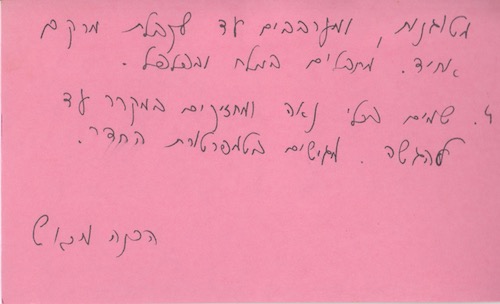 מטוגנות, ומערבבים עד לקבלת מרקם
אחיד. מתבלים במלח ובפלפל.
4. שמים בכלי נאה ומחזיקים במקרר עד
להגשה. מגישים בטמפרטורת החדר.
הכנה מראש